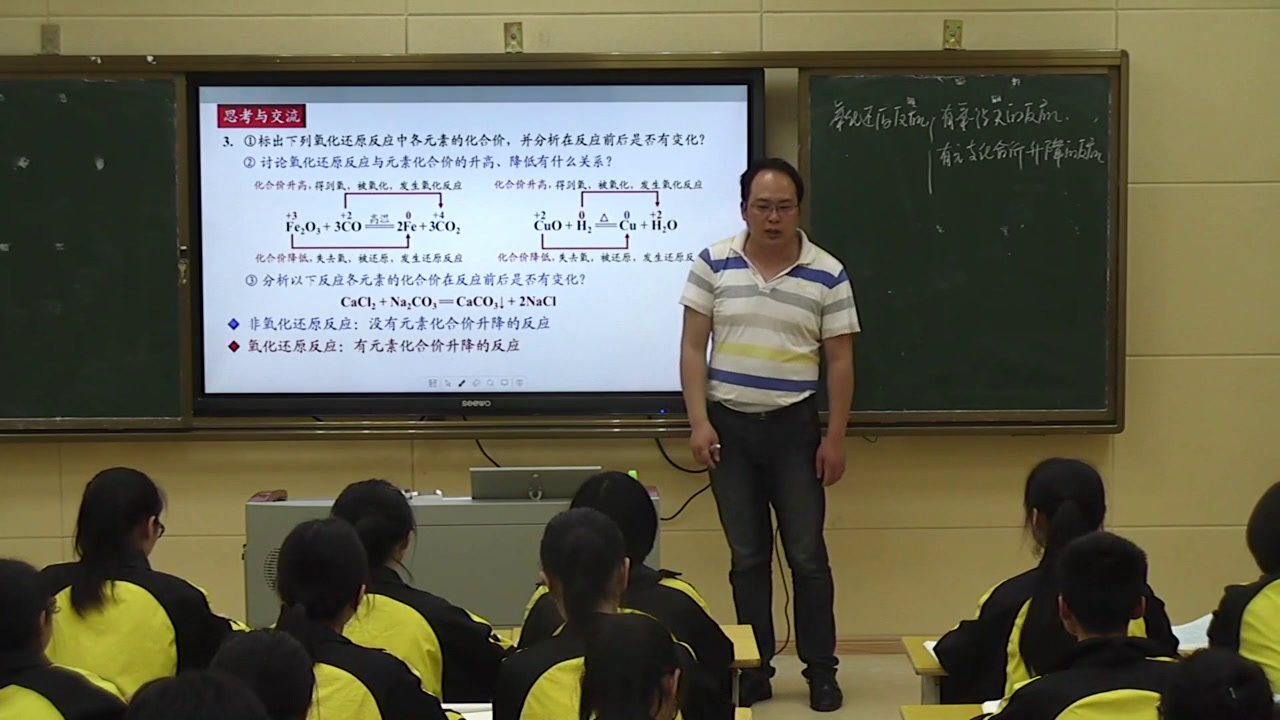 思考与交流
3. ①标出下列氧化还原反应中各元素的化合价，并分析在反应前后是否有变化？
② 讨论氧化还原反应与元素化合价的升高、降低有什么关系？
化合价升高, 得到氧, 被氧化, 发生氧化反应
化合价升高, 得到氧, 被氧化, 发生氧化反应
+3 +2 0 +4
Fe₂O₃ + 3CO 高温 2Fe + 3CO₂
+2 0 0 +2
CuO + H₂ △ Cu + H₂O
化合价降低, 失去氧, 被还原, 发生还原反应
化合价降低, 失去氧, 被还原, 发生还原反
③ 分析以下反应各元素的化合价在反应前后是否有变化？
CaCl₂ + Na₂CO₃ == CaCO₃↓ + 2NaCl
非氧化还原反应：没有元素化合价升降的反应
氧化还原反应：有元素化合价升降的反应
seewo
氧化还原反应
有氧得失的反应.
有元素化合价升降的反应